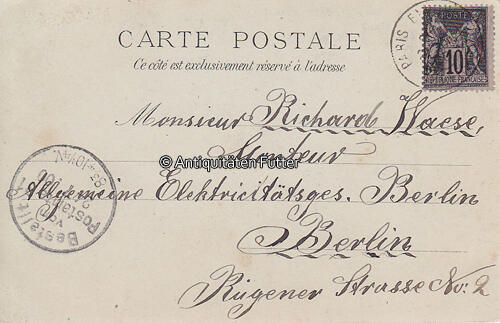 CARTE POSTALE
Ce côté est exclusivement réservé à l'adresse
PARIS
POSTE
10
Monsieur Richard Waese,
Monteur
© Antiquitäten Fütter
Allgemeine Elektricitätsges. Berlin
Berlin
Rügener Strasse No: 2
Bestellt
Postamt